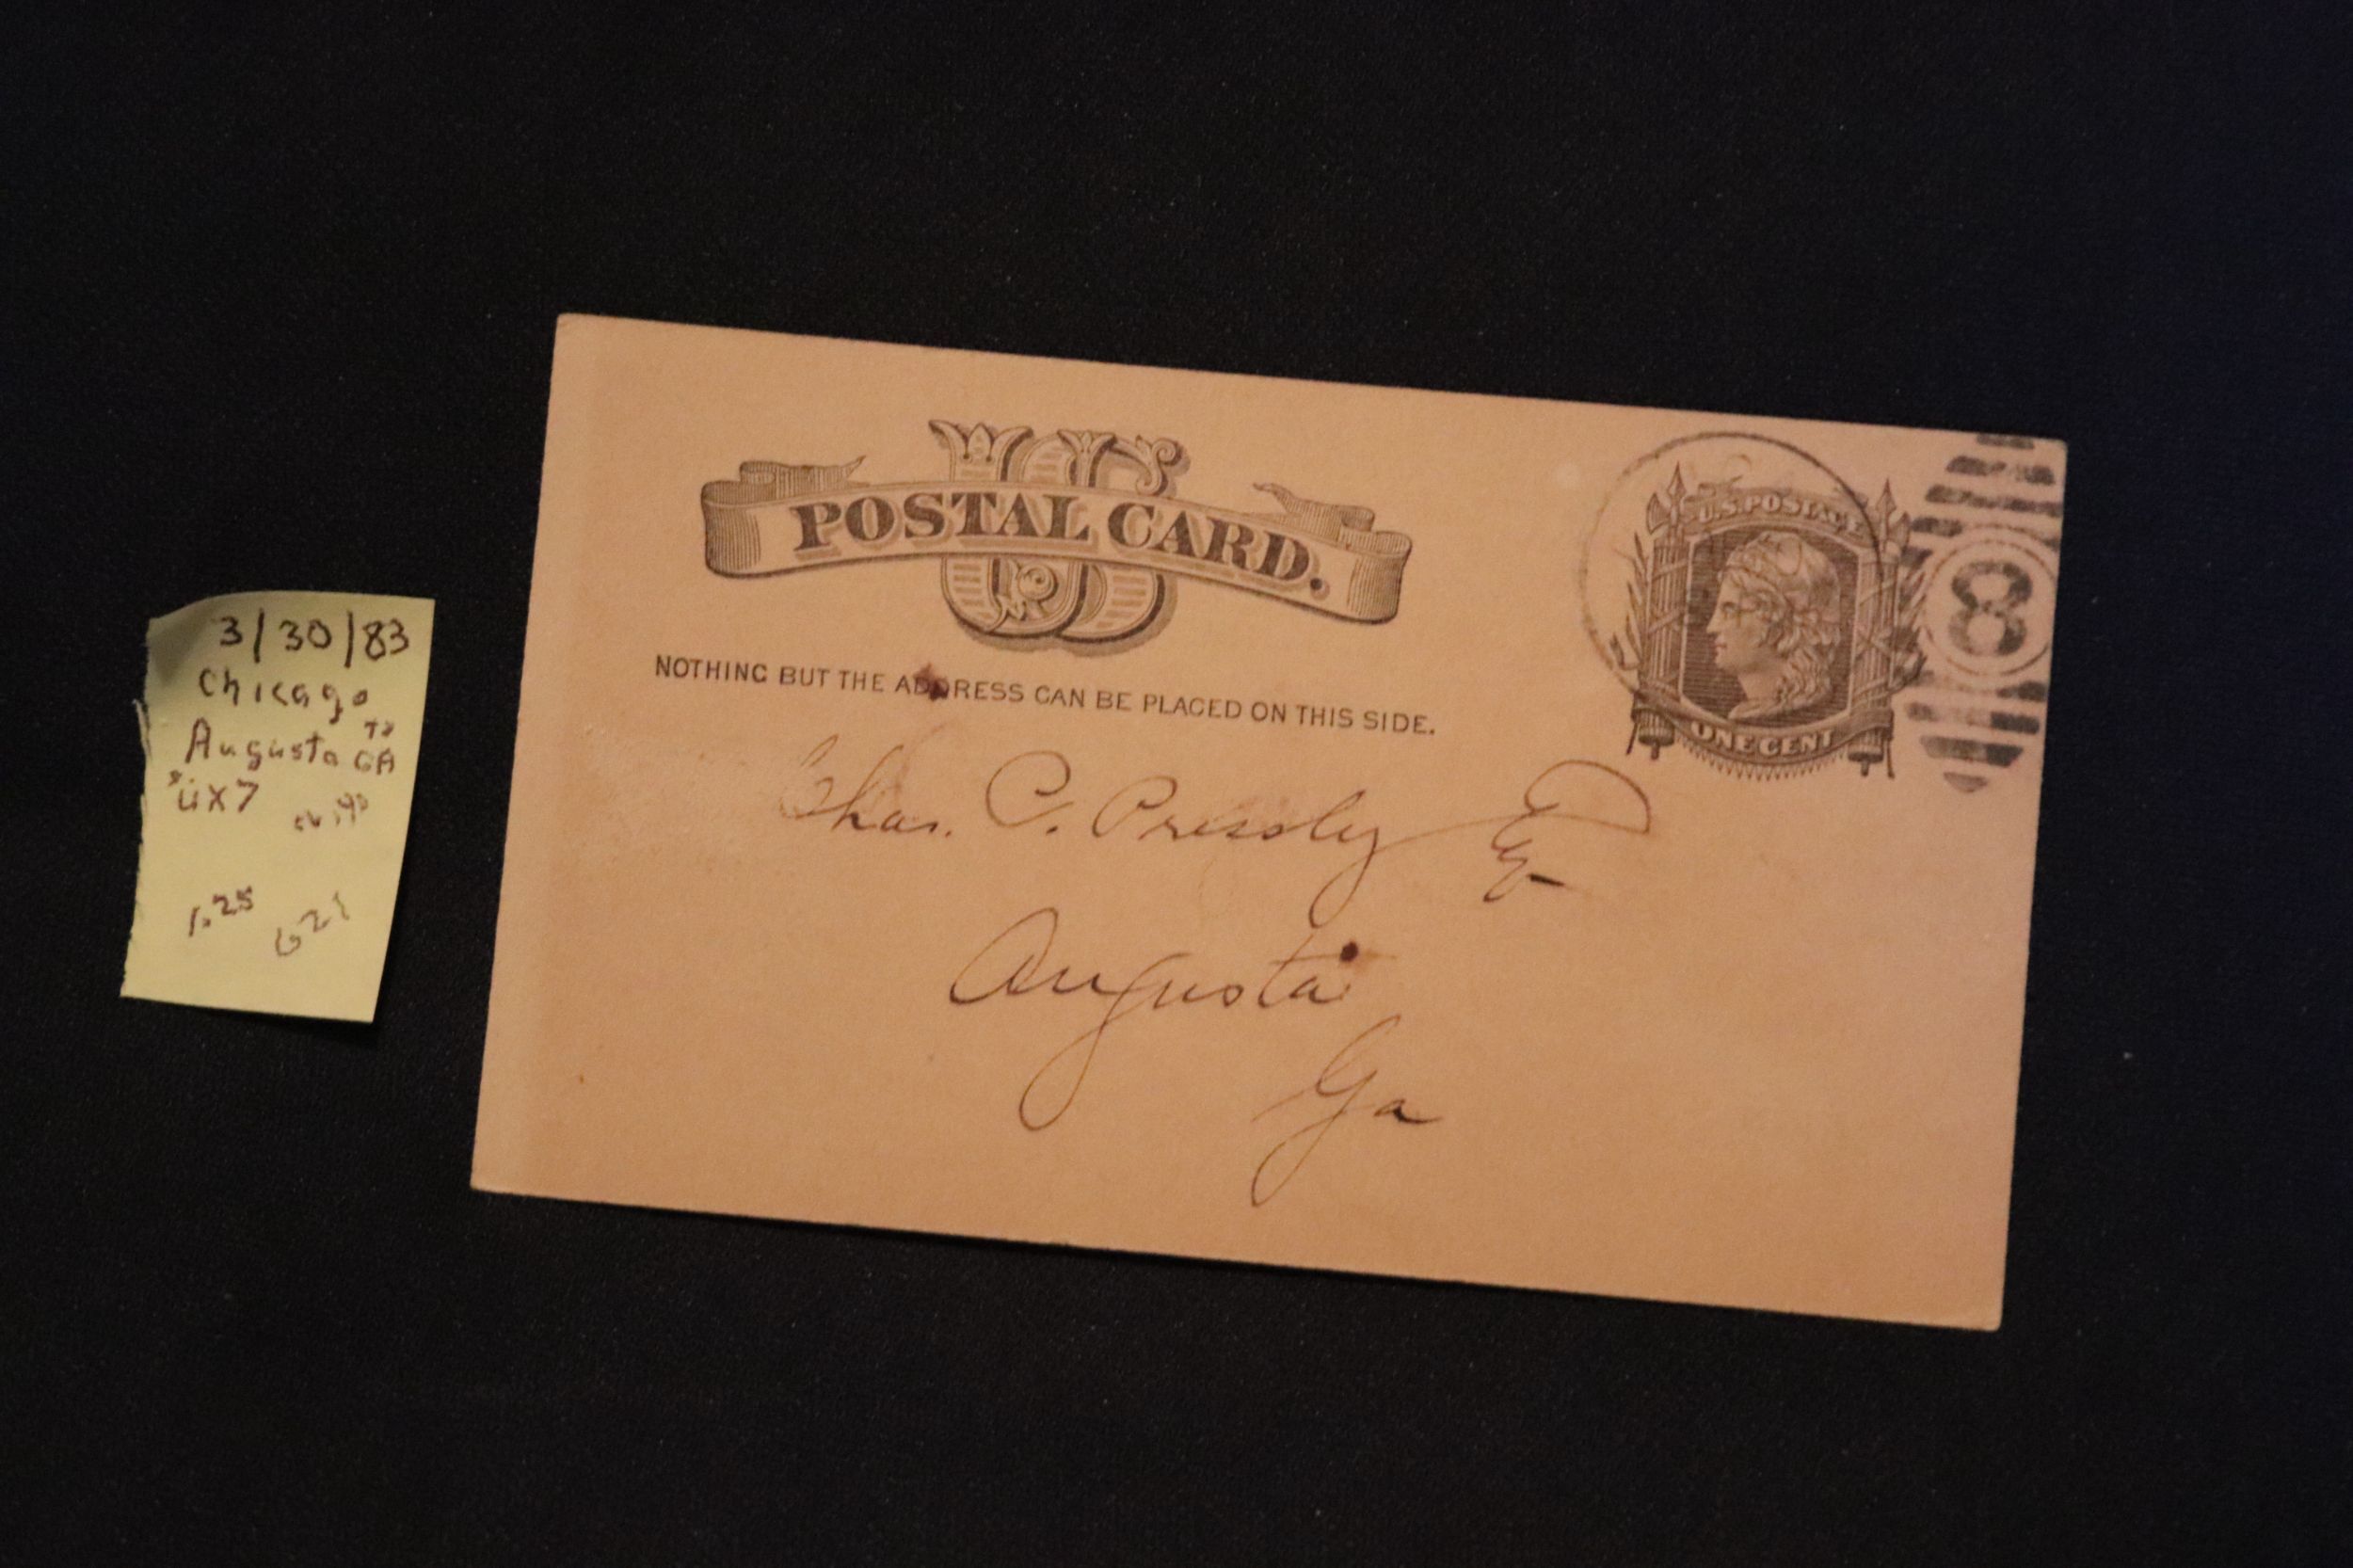 3/30/83
Chicago
To
Augusta GA
UX7
1.25
US
POSTAL CARD.
NOTHING BUT THE ADDRESS CAN BE PLACED ON THIS SIDE.
U.S. POSTAGE
ONE CENT
8
Chas. C. Pressly
Augusta
Ga